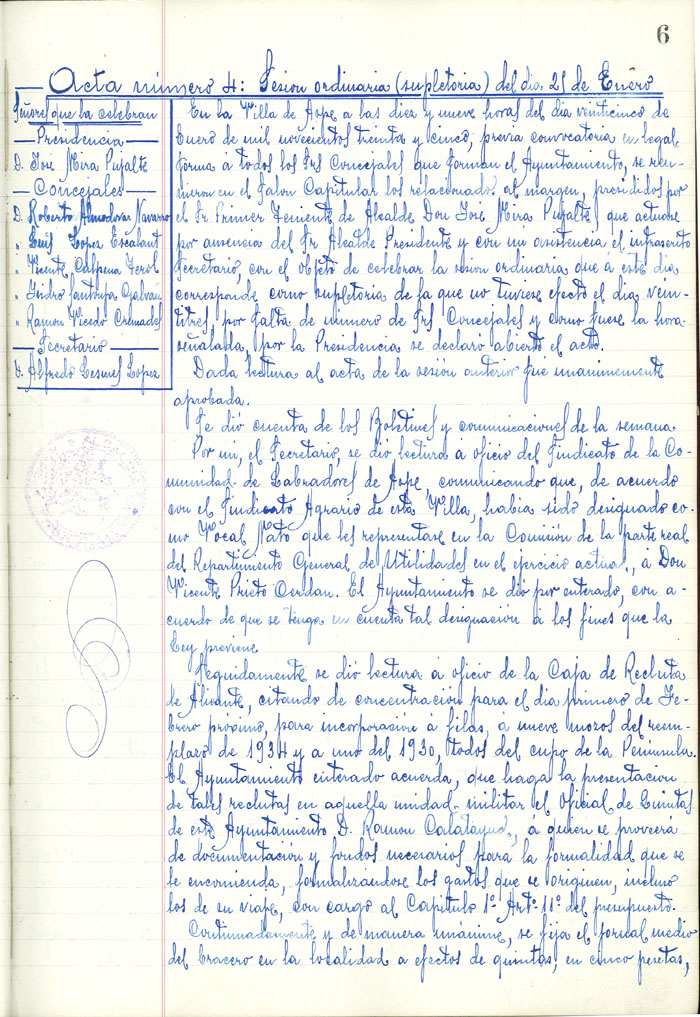 6
Acta número 4: Sesion ordinaria (supletoria) del dia 25 de Enero
Señores que la celebran
Presidencia
D. José Mira Pujalte
Concejales
D. Roberto Almodovar Navarro
" Luis Lopez Escalant
" Vicente Calpena Terol
" Isidro Santonja Galvañ
" Ramon Vicedo Cremades
Secretario
D. Alfredo Lesmes Lopez
En la Villa de Aspe a las diez y nueve horas del dia veinticinco de
Enero de mil novecientos treinta y cinco, previa convocatoria en legal
forma á todos los Srs Concejales que forman el Ayuntamiento, se reu-
nieron en el Salon Capitular los relacionados al margen, presididos por
el Sr Primer Teniente de Alcalde Don José Mira Pujalte, que actua
por ausencia del Sr. Alcalde Presidente y con mi asistencia el infrascrito
Secretario, con el objeto de celebrar la sesion ordinaria que á este dia
corresponde como supletoria de la que no tuviese efecto el dia vein-
titres por falta de número de Srs Concejales y como fuese la hora
señalada, por la Presidencia se declaró abierto el acto.
Dada lectura al acta de la sesion anterior fue unanimemente
aprobada.
Se dió cuenta de los Boletines y comunicaciones de la semana
Por mi, el Secretario, se dió lectura á oficio del Sindicato de la Co-
munidad de Labradores de Aspe, comunicando que, de acuerdo
con el Sindicato Agrario de esta Villa, habia sido designado co-
mo Vocal Nato que les representase en la Comisión de la parte real
del Repartimiento General de Utilidades en el ejercicio actual, á Don
Vicente Prieto Cerdan. El Ayuntamiento se dió por enterado, con a-
cuerdo de que se tenga en cuenta tal designación á los fines que la
Ley previene
Seguidamente se dió lectura á oficio de la Caja de Recluta
de Alicante, citando de concentración para el dia primero de Fe-
brero próximo, para incorporación á filas, á nueve mozos del reem-
plazo de 1934 y a uno del 1930, todos del cupo de la Peninsula.
El Ayuntamiento enterado acuerda, que haga la presentacion
de tales reclutas en aquella unidad militar el Oficial de Quintas
de este Ayuntamiento D. Ramon Calatayud, á quien se proveerá
de documentación y fondos necesarios para la formalidad que se
le encomienda, formalizandose los gastos que se originen, incluso
los de su viaje, con cargo al Capitulo 1º Artº 11º del presupuesto.
Continuadamente y de manera unánime, se fija el jornal medio
del bracero en la localidad a efectos de quintas, en cinco pesetas,